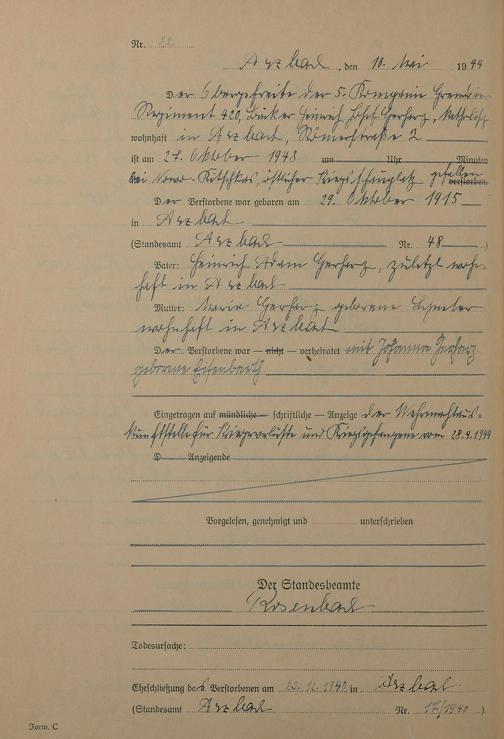 Nr. 22
Arzbach, den 10. Mai 1944
Der Obergefreite der 5. Kompanie Grenadier
Regiment 420, Bäcker Heinrich Josef Gerharz, katholisch
wohnhaft in Arzbach, Römerstraße 2
ist am 27. Oktober 1943 um Uhr Minuten
bei Nowo-Kitschkas, östlicher Kriegsschauplatz gefallen verstorben.
Der Verstorbene war geboren am 29. Oktober 1915
in Arzbach
(Standesamt Arzbach Nr. 48)
Vater: Heinrich Adam Gerharz, zuletzt wohn-
haft in Arzbach
Mutter: Maria Gerharz geborene
wohnhaft in Arzbach
Der Verstorbene war — nicht — verheiratet mit Johanna Gerharz
geborene Eisenbarth
Eingetragen auf mündliche — schriftliche — Anzeige der Wehrmachtaus-
kunftstelle für Kriegerverluste und Kriegsgefangene vom 28.4.1944
D Anzeigende
Vorgelesen, genehmigt und unterschrieben
Der Standesbeamte
Rosenbach
Todesursache:
Eheschließung des Verstorbenen am 23.12.1940 in Arzbach
(Standesamt Arzbach Nr. 17/1940)
Form. C